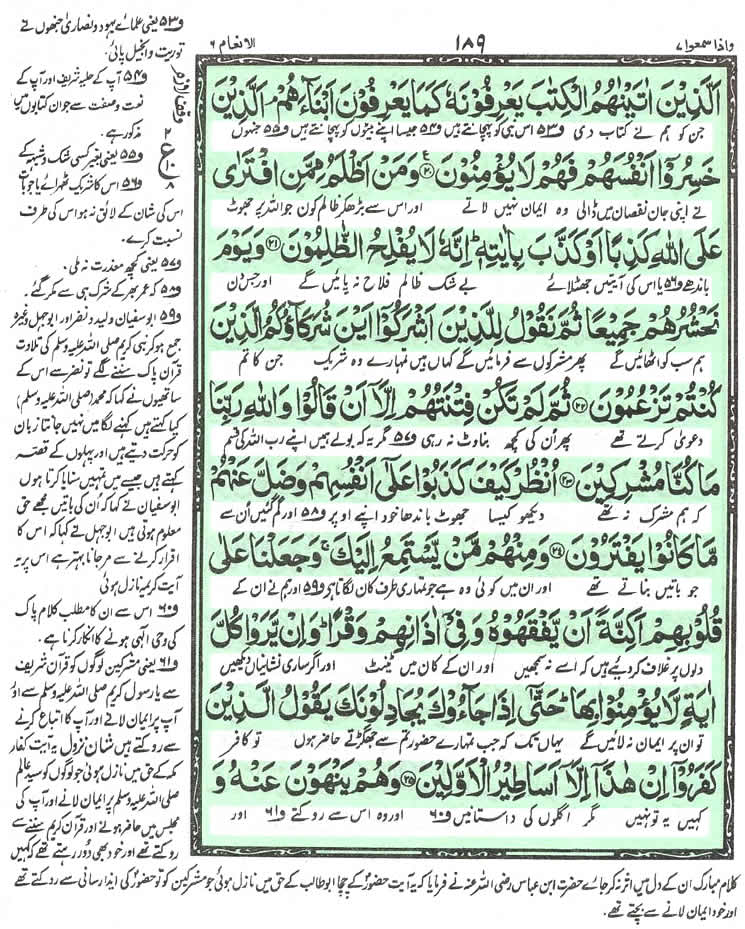 واذا سمعوا ۷
۱۸۹
الانعام ۶
اَلَّذِيْنَ اٰتَيْنٰهُمُ الْكِتٰبَ يَعْرِفُوْنَهٗ كَمَا يَعْرِفُوْنَ اَبْنَآءَهُمْ ۘ اَلَّذِيْنَ
جن کو ہم نے کتاب دی و۵۳ اس نبی کو پہچانتے ہیں و۵۴ جیسا اپنے بیٹوں کو پہچانتے ہیں و۵۵ جنہوں
خَسِرُوْٓا اَنْفُسَهُمْ فَهُمْ لَا يُؤْمِنُوْنَ ۲۰ وَمَنْ اَظْلَمُ مِمَّنِ افْتَرٰى
نے اپنی جان نقصان میں ڈالی وہ ایمان نہیں لاتے اور اس سے بڑھ کر ظالم کون جو اللہ پر جھوٹ
عَلَى اللّٰهِ كَذِبًا اَوْ كَذَّبَ بِاٰيٰتِهٖ ؕ اِنَّهٗ لَا يُفْلِحُ الظّٰلِمُوْنَ ۲۱ وَيَوْمَ
باندھے و۵۶ یا اس کی آیتیں جھٹلائے بے شک ظالم فلاح نہ پائیں گے اور جس دن
نَحْشُرُهُمْ جَمِيْعًا ثُمَّ نَقُوْلُ لِلَّذِيْنَ اَشْرَكُوْٓا اَيْنَ شُرَكَآؤُكُمُ الَّذِيْنَ
ہم سب کو اٹھائیں گے پھر مشرکوں سے فرمائیں گے کہاں ہیں تمہارے وہ شریک جن کا تم
كُنْتُمْ تَزْعُمُوْنَ ۲۲ ثُمَّ لَمْ تَكُنْ فِتْنَتُهُمْ اِلَّآ اَنْ قَالُوْا وَاللّٰهِ رَبِّنَا
دعویٰ کرتے تھے پھر ان کی کچھ بناوٹ نہ رہی و۵۷ مگر یہ کہ بولے ہمیں اپنے رب اللہ کی قسم
مَا كُنَّا مُشْرِكِيْنَ ۲۳ اُنْظُرْ كَيْفَ كَذَبُوْا عَلٰٓى اَنْفُسِهِمْ وَضَلَّ عَنْهُمْ
کہ ہم مشرک نہ تھے دیکھو کیسا جھوٹ باندھا خود اپنے اوپر و۵۸ اور گم گئیں ان سے
مَّا كَانُوْا يَفْتَرُوْنَ ۲۴ وَمِنْهُمْ مَّنْ يَّسْتَمِعُ اِلَيْكَ ۚ وَجَعَلْنَا عَلٰى
جو باتیں بناتے تھے اور ان میں کوئی وہ ہے جو تمہاری طرف کان لگاتا ہے و۵۹ اور ہم نے ان کے
قُلُوْبِهِمْ اَكِنَّةً اَنْ يَّفْقَهُوْهُ وَفِيْٓ اٰذَانِهِمْ وَقْرًا ؕ وَاِنْ يَّرَوْا كُلَّ
دلوں پر غلاف کر دیے ہیں کہ اسے نہ سمجھیں اور ان کے کان میں ٹینٹ اور اگر ساری نشانیاں دیکھیں
اٰيَةٍ لَّا يُؤْمِنُوْا بِهَا ؕ حَتّٰٓى اِذَا جَآءُوْكَ يُجَادِلُوْنَكَ يَقُوْلُ الَّذِيْنَ
تو ان پر ایمان نہ لائیں گے یہاں تک کہ جب تمہارے حضور تم سے جھگڑتے حاضر ہوں تو کافر
كَفَرُوْٓا اِنْ هٰذَآ اِلَّآ اَسَاطِيْرُ الْاَوَّلِيْنَ ۲۵ وَهُمْ يَنْهَوْنَ عَنْهُ وَ
کہیں یہ تو نہیں مگر اگلوں کی داستانیں و۶۰ اور وہ اس سے روکتے و۶۱ اور
و۵۳ یعنی علمائے یہود و نصاریٰ جنھوں نے
توریت و انجیل پائی۔
و۵۴ آپ کے حلیہ شریف اور آپ کے
نعت و صفت سے جو ان کتابوں میں
مذکور ہے۔
و۵۵ یعنی بغیر کسی شک و شبہہ کے
و۵۶ اس کا شریک ٹھہرائے یا جو بات
اس کی شان کے لائق نہ ہو اس کی طرف
نسبت کرے۔
و۵۷ یعنی کچھ معذرت نہ ملی۔
و۵۸ کہ عمر بھر کے شرک ہی سے مکر گئے۔
و۵۹ ابوسفیان ولید و نضر اور ابوجہل وغیرہ
جمع ہو کر نبی کریم صلی اللہ علیہ وسلم کی تلاوت
قرآن پاک سننے لگے تو نضر سے اس کے
ساتھیوں نے کہا کہ محمد (صلی اللہ علیہ وسلم)
کیا کہتے ہیں کہنے لگا میں نہیں جانتا زبان
کو حرکت دیتے ہیں اور پہلوں کے قصے
کہتے ہیں جیسے میں تمہیں سنایا کرتا ہوں
ابوسفیان نے کہا کہ ان کی باتیں مجھے حق
معلوم ہوتی ہیں ابوجہل نے کہا کہ اس کا
اقرار کرنے سے مر جانا بہتر ہے اس پر یہ
آیت کریمہ نازل ہوئی
و۶۰ اس سے ان کا مطلب کلام پاک
کی وحی الٰہی ہونے کا انکار کرنا ہے۔
و۶۱ یعنی مشرکین لوگوں کو قرآن شریف
سے یا رسول کریم صلی اللہ علیہ وسلم سے اور
آپ پر ایمان لانے اور آپ کا اتباع کرنے
سے روکتے ہیں شان نزول یہ آیت کفار
مکہ کے حق میں نازل ہوئی جو لوگوں کو سید عالم
صلی اللہ علیہ وسلم پر ایمان لانے اور آپ کی
مجلس میں حاضر ہونے اور قرآن کریم سننے سے
روکتے تھے اور خود بھی دور رہتے تھے کہ کہیں
کلام مبارک ان کے دل میں اثر نہ کر جائے حضرت ابن عباس رضی اللہ عنہ نے فرمایا کہ یہ آیت حضور کے چچا ابوطالب کے حق میں نازل ہوئی جو مشرکین کو تو حضور کی ایذا رسانی سے روکتے تھے
اور خود ایمان لانے سے بچتے تھے۔